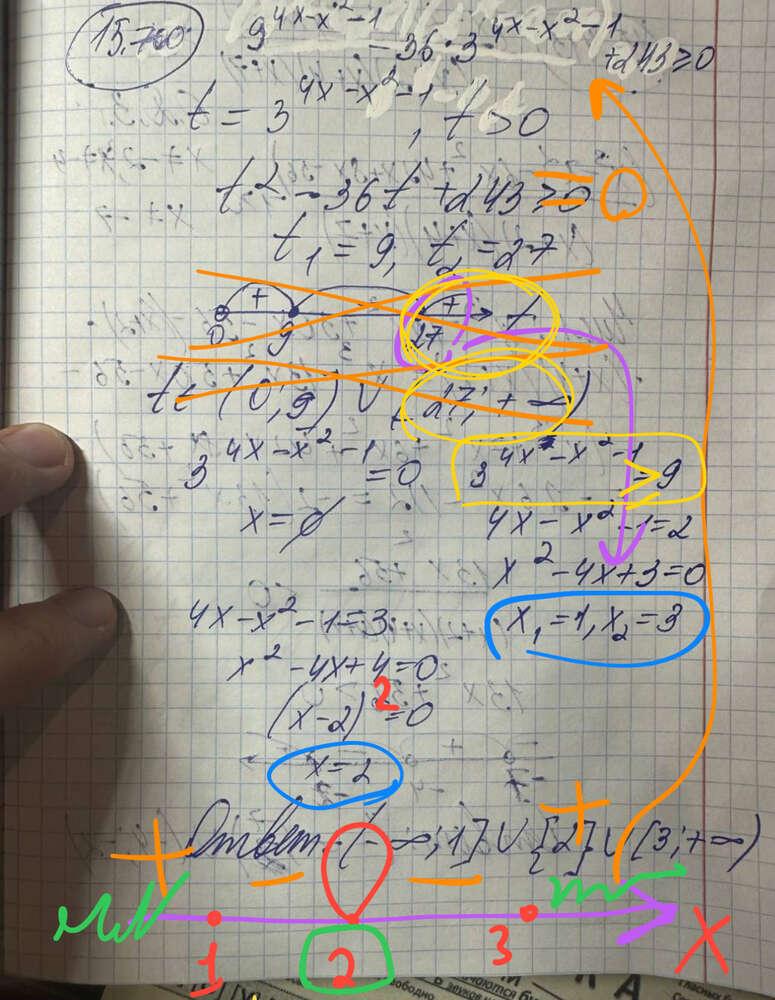 15.700
9^(4x-x²-1) - 36·3^(4x-x²-1) + 243 ≥ 0
t = 3^(4x-x²-1), t > 0
t² - 36t + 243 ≥ 0 = 0
t₁ = 9, t₂ = 27
+ - +
0 9 27 t
t ∈ (0; 9) ∪ 27; + ∞)
3^(4x-x²-1) = 0 3^(4x-x²-1) ≥ 9
x = ∅ 4x - x² - 1 = 2
x² - 4x + 3 = 0
4x - x² - 1 = 3 x₁ = 1, x₂ = 3
x² - 4x + 4 = 0
(x-2)² = 0
x = 2
Ответ: (-∞; 1] ∪ {2} ∪ [3; +∞)
+ - - +
1 2 3 X